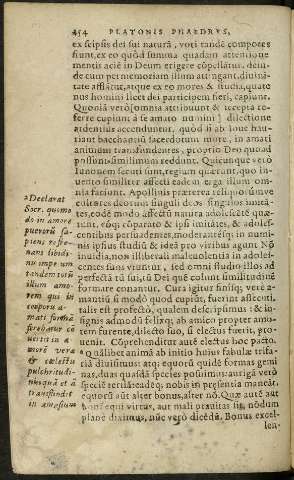 454 PLATONIS PHAEDRVS,
ex seipsis dei sui naturā, voti tandē compotes
fiunt, ex eo quòd summa quadam attentione
mentis aciē in Deum erigere cōpellātur. dein-
de cum per memoriam illum attingant, diuini-
tate afflātur, atque ex eo mores & studia, quate-
nus homini licet dei participem fieri, capiunt.
Quoniā verò somnia attribuunt & accepta re-
ferre cupiunt à se amato nimirū dilectione
ardentius accenduntur. quòd si ab Ioue hau-
riant bacchantiū sacerdotum more, in amati
animum transfundentes, proprio Deo quoad
possunt simillimum reddunt. Quicunque verò
Iunonem secuti sunt, regium quærunt, quo in-
uento similiter affecti eadem erga illum om-
nia faciunt. Apollinis præterea reliquorúmue
cultores deorum singuli deos singulos imitā-
tes, eodē modo affectū natura adolescētē quæ-
runt, eóq; cōparato & ipsi imitātes, & adolef-
centibus persuadentes, moderantésq; in numi-
nis ipsius studiū & ideā pro viribus agunt. Nō
inuidia, non illiberali maleuolentia in adoles-
centes suos vtuntur, sed omni studio illos ad
perfectā tū sui, tū Dei quē colunt similitudinē
formare conantur. Cura igitur finisq; verè a-
mantiū si modò quod cupiūt, fuerint assecuti,
talis est profectò, qualem descripsimus: & in-
signis admodū felixq; ab amico propter amo-
rem furente, dilecto suo, si electus fuerit, pro-
uenit. Cōprehenditur autē electus hoc pacto.
Quālibet animā ab initio huius fabulæ trifa-
riā diuisimus: atq; equorū quidē formas gemi-
nas, duas quasdā species posuimus: aurigā verò
speciē tertiā: eadēq; nobis in præsentia maneāt.
equorū aūt alter bonus, alter nō. Quæ autē aut
boni equi virtus, aut mali prauitas sit, nondum
planè diximus, nūc verò dicēdū. Bonus excel-
len-
Declarat
Socr. quomo
do in amore
puerorū sa-
piens refre-
nans libidi-
nē impe
tandem toti
illum amo-
rem qui in
corporu a-
mati forma
ferebatur co
uertit in a
morē vera
& cælestu
pulchritudi-
nisq́ua et à
transfendit
in amasium